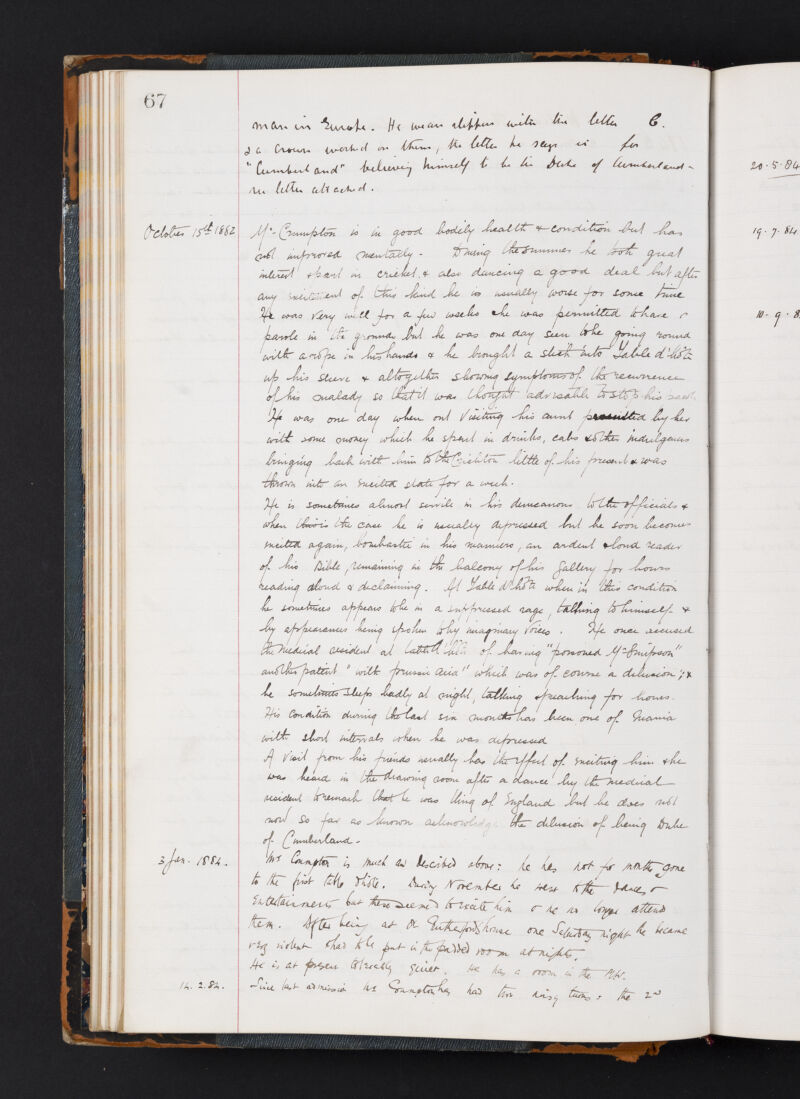 67
man in Europe. He wears slippers with the letter C.
& a crown worked on them, the letter he says is for
"Cumberland" believing himself to be the Duke of Cumberland -
letter attached.
20.5.84
October 15th 1882
Mr Crumpton is in good bodily health & condition but has
not improved mentally. During the summer he took great
19.7.84
interest & part in cricket & also dancing a good deal but after
any excitement of this kind he is usually worse for some time
He was very well for a few weeks & he was permitted to have
10.9.8
parole in the grounds but he was one day seen to be going round
with a rope in his hands & he brought a stick into Table d'hôte
up his sleeve & altogether showing symptoms of the recurrence
of his malady so that it was thought advisable to stop his
He was one day when out visiting his aunt presented by her
with some money which he spent in drinks, cabs & other indulgences
bringing back with him to the Crichton little of his present & was
thrown into an excited state for a week.
He is sometimes almost servile in his demeanour to the officials &
when this is the case he is usually depressed but he soon becomes
excited again, bombastic in his manners, an ardent & loud reader
of his Bible, remaining in the balcony of his gallery for hours
reading aloud & declaiming. At Table d'hôte when in this condition
he sometimes appears to be in a suppressed rage, talking to himself &
by appearances being spoken to by imaginary voices. He once accused
the medical resident at table d'hôte of having "poisoned Mr Simpson"
another patient "with prussic acid" which was of course a delusion; &
he sometimes sleeps badly at night, talking & preaching for hours.
His condition during the last six months has been one of Mania
with short intervals when he was depressed
A visit from his friends usually has the effect of exciting him & he
was heard in the drawing room after a dance by the medical
resident to remark that he was King of England but he does not
now so far as known acknowledge the delusion of being Duke
of Cumberland.
3 Jan. 1884.
Mr Crumpton is much as described above: he has not for months gone
to the first table d'hôte. During November he went to the dances &
Entertainments but these seemed to excite him & he no longer attends
them. After being at Dr Rutherford's house one Saturday night he became
very violent & had to be put in the padded room at nights.
He is at present tolerably quiet. He has a room in the
14.2.84.
Since last admission Mr Crumpton has had two noisy turns: the 2nd